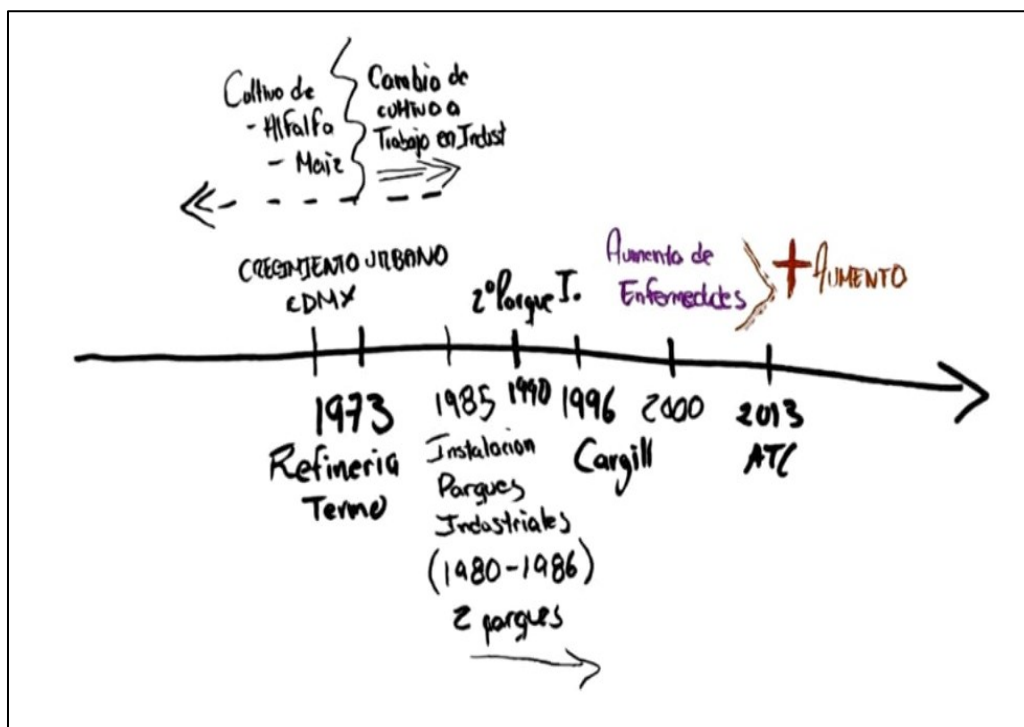 Cultivo de
- Alfalfa
- Maiz
Cambio de
cultivo a
Trabajo en Indust
CRECIMIENTO URBANO
CDMX
2° Parque I.
Aumento de
Enfermedades
+ AUMENTO
1973
Refineria
Termo
1985
Instalacion
Parques
Industriales
(1980-1986)
2 parques
1990
1996
Cargill
2000
2013
ATC